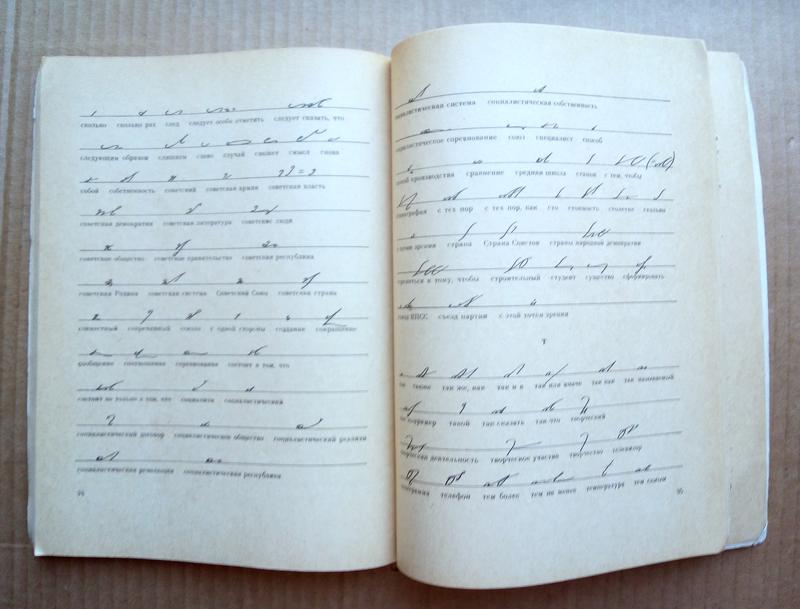 сколько сколько раз след следует особо отметить следует сказать, что
следующим образом слишком слово случай сможет смысл снова
собой собственность советский советская армия советская власть
советская демократия советская литература советские люди
советское общество советское правительство советская республика
советская Родина советская система Советский Союз советская страна
совместный современный союза с одной стороны создание сокращение
сообщение соотношение соревнование состоит в том, что
состоит не только в том, что социалист социалистический
социалистический договор социалистическое общество социалистический реализм
социалистическая революция социалистическая республика
94
социалистическая система социалистическая собственность
социалистическое соревнование союз специалист способ
способ производства сравнение средняя школа станок с тем, чтобы
стенография с тех пор с тех пор, как сто стоимость столетие столько
с точки зрения страна Страна Советов страны народной демократии
стремиться к тому, чтобы строительный студент существо сформировать
съезд КПСС съезд партии с этой точки зрения
Т
так также так же, как так и в так или иначе так как так называемый
так например такой так сказать так что творческий
творческая деятельность творческое участие творчество телевизор
телеграмма телефон тем более тем не менее температура тем самым
95